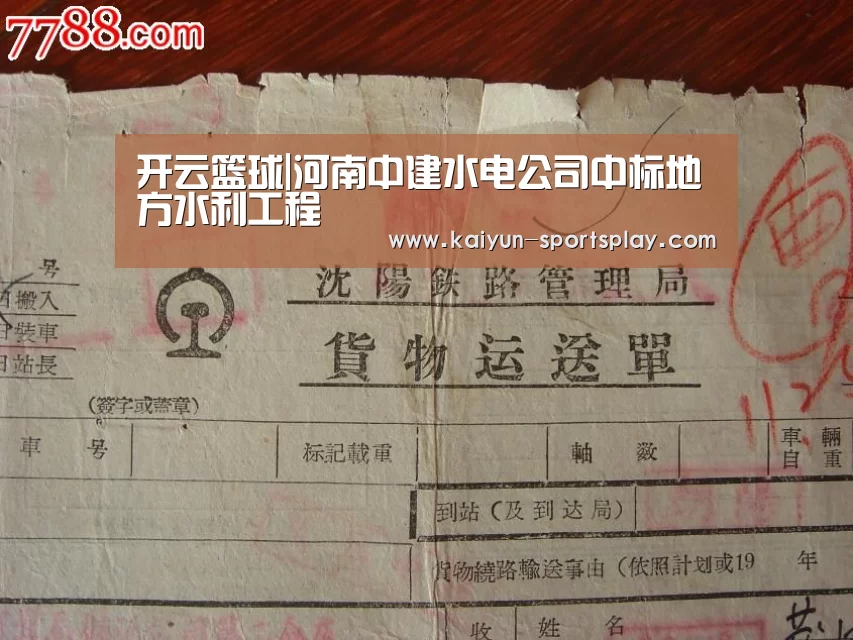 7788.com
开云篮球|河南中建水电公司中标地
方水利工程
www.kaiyun-sportsplay.com
号
搬入
装車
站長
沈陽鉄路管理局
貨物运送單
(簽字或蓋章)
車号
标記載重
軸数
車輛
自重
到站(及到达局)
貨物繞路輸送事由(依照計划或19 年
收
姓名